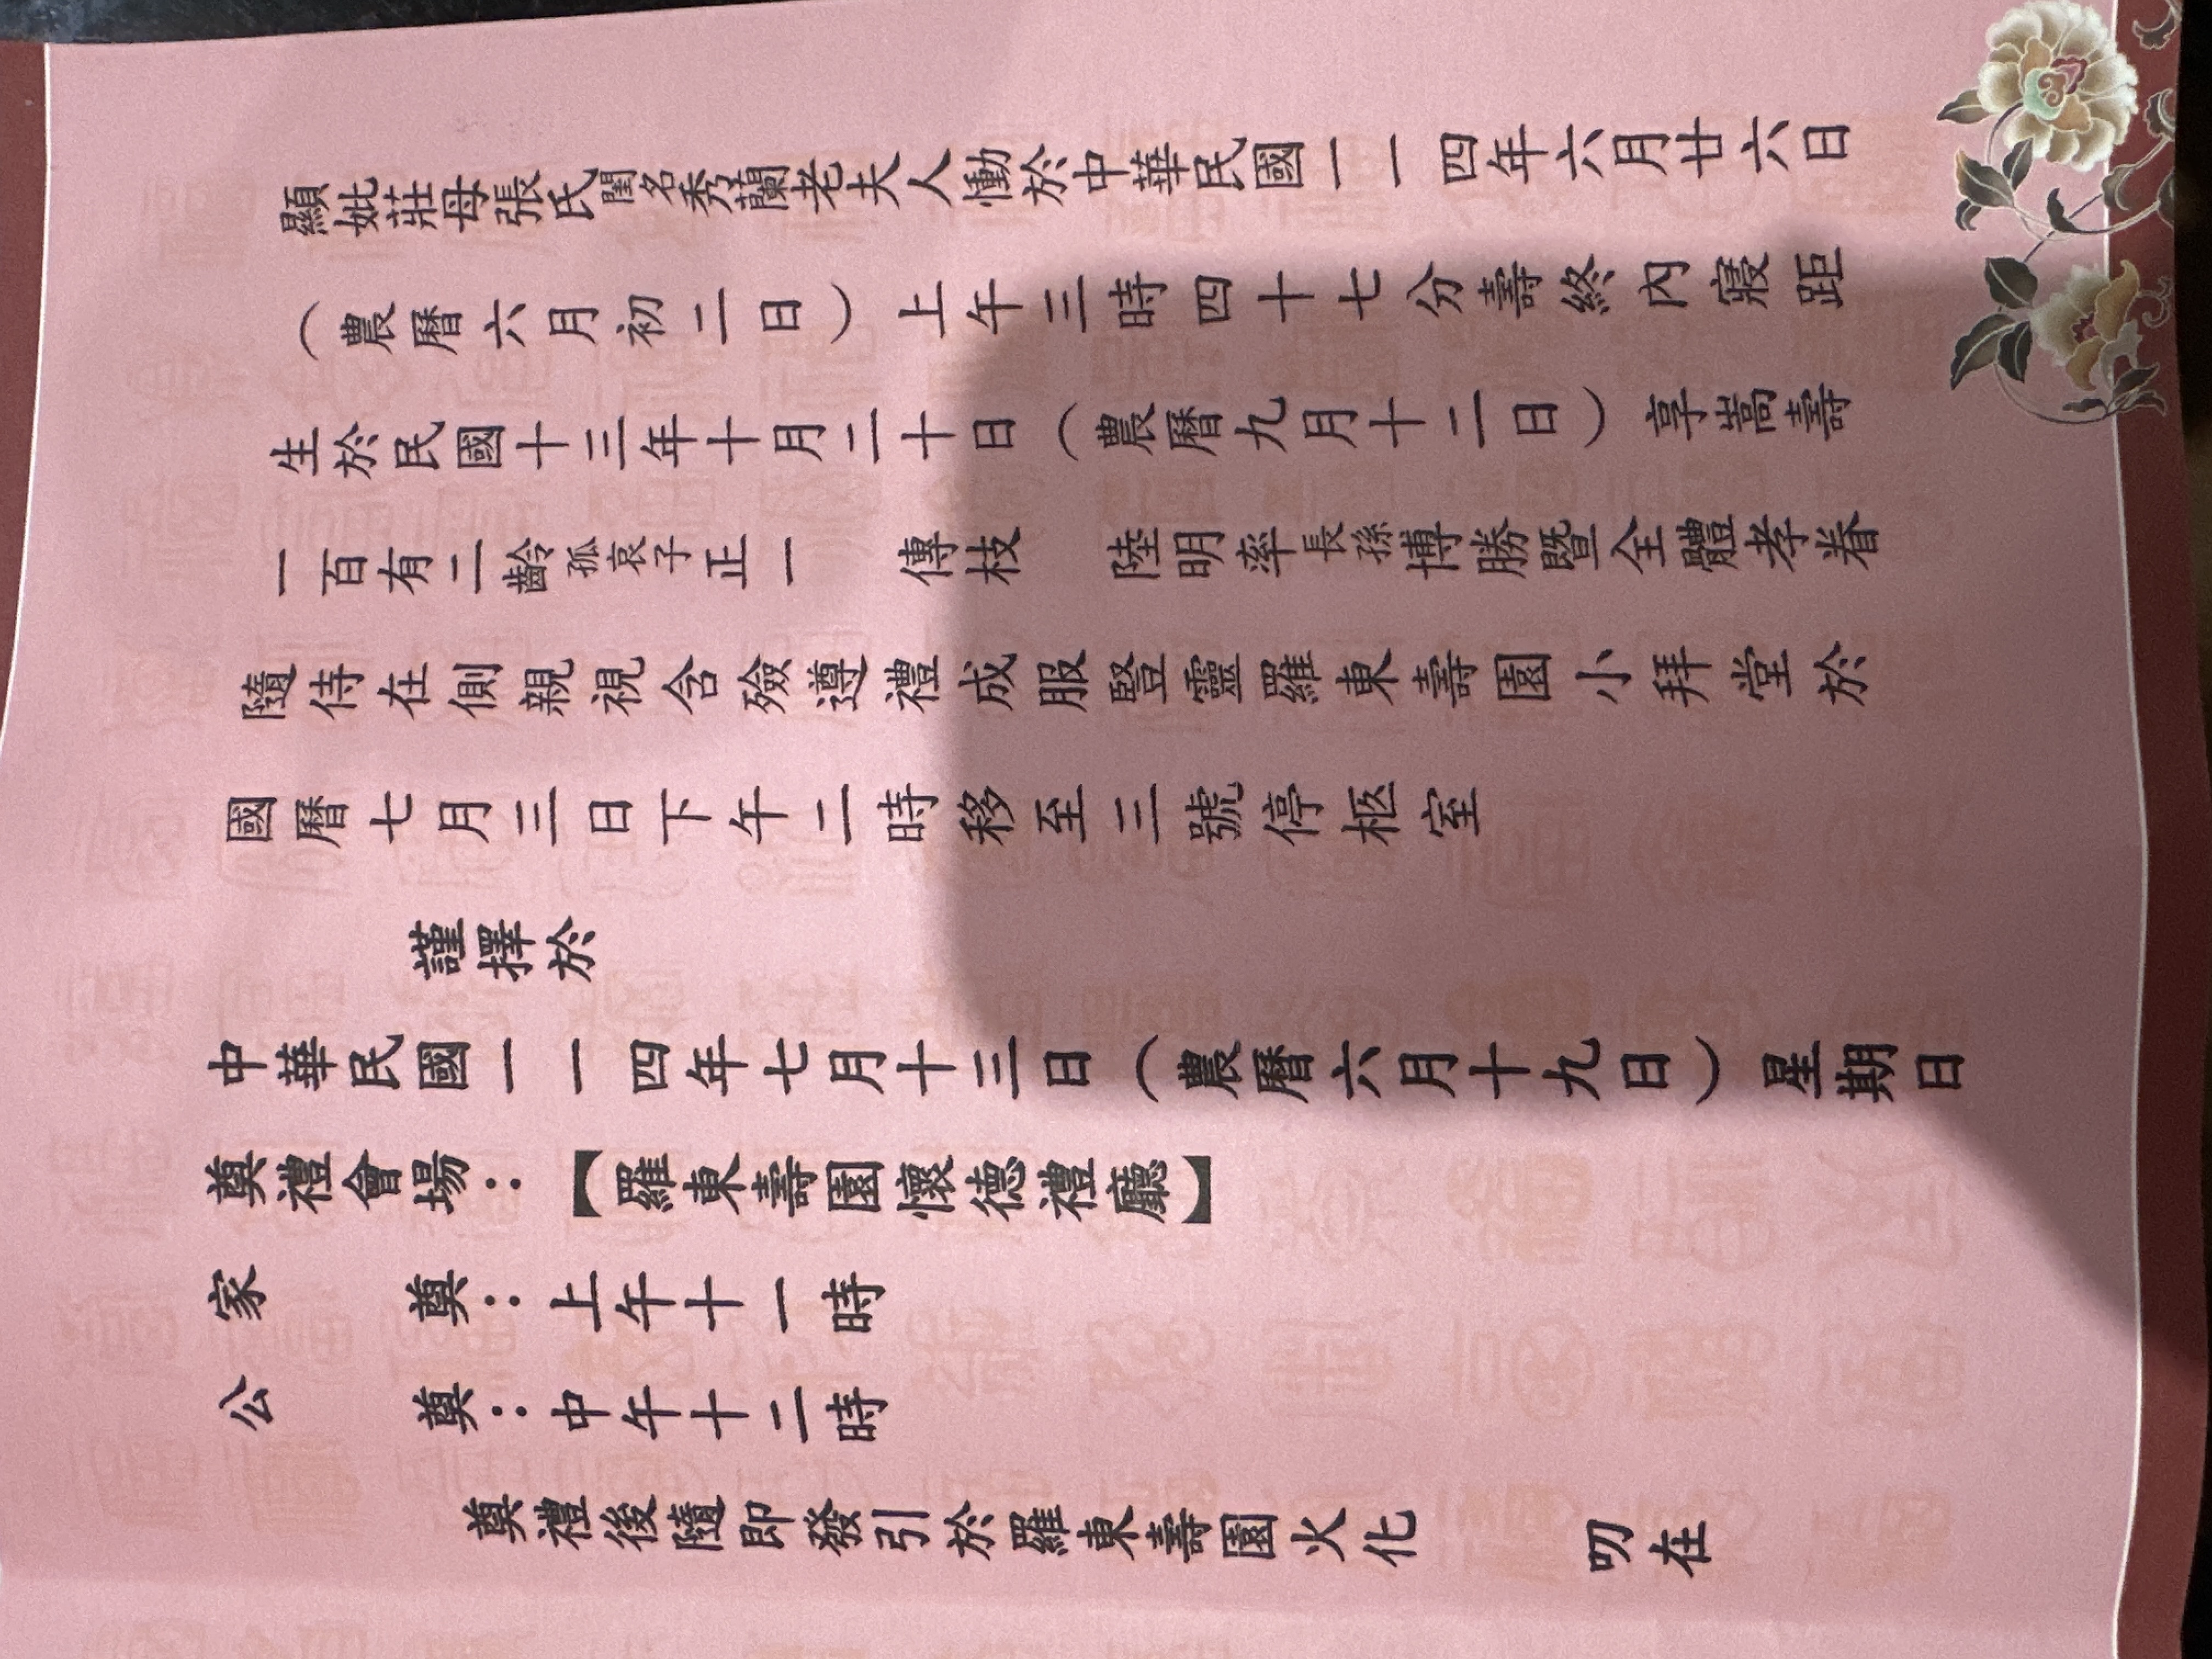 顯妣莊母張氏閨名秀蘭老夫人慟於中華民國一一四年六月廿六日
（農曆六月初二日）上午三時四十七分壽終內寢距
生於民國十三年十月二十日（農曆九月十二日）享嵩壽
一百有二齡孤哀子正一　傳枝　陸明率長孫博勝暨全體孝眷
隨侍在側親視含殮遵禮成服豎靈羅東壽園小拜堂於
國曆七月三日下午二時移至三號停柩室
謹擇於
中華民國一一四年七月十三日（農曆六月十九日）星期日
奠禮會場：【羅東壽園懷德禮廳】
家　　奠：上午十一時
公　　奠：中午十二時
奠禮後隨即發引於羅東壽園火化　　叨在